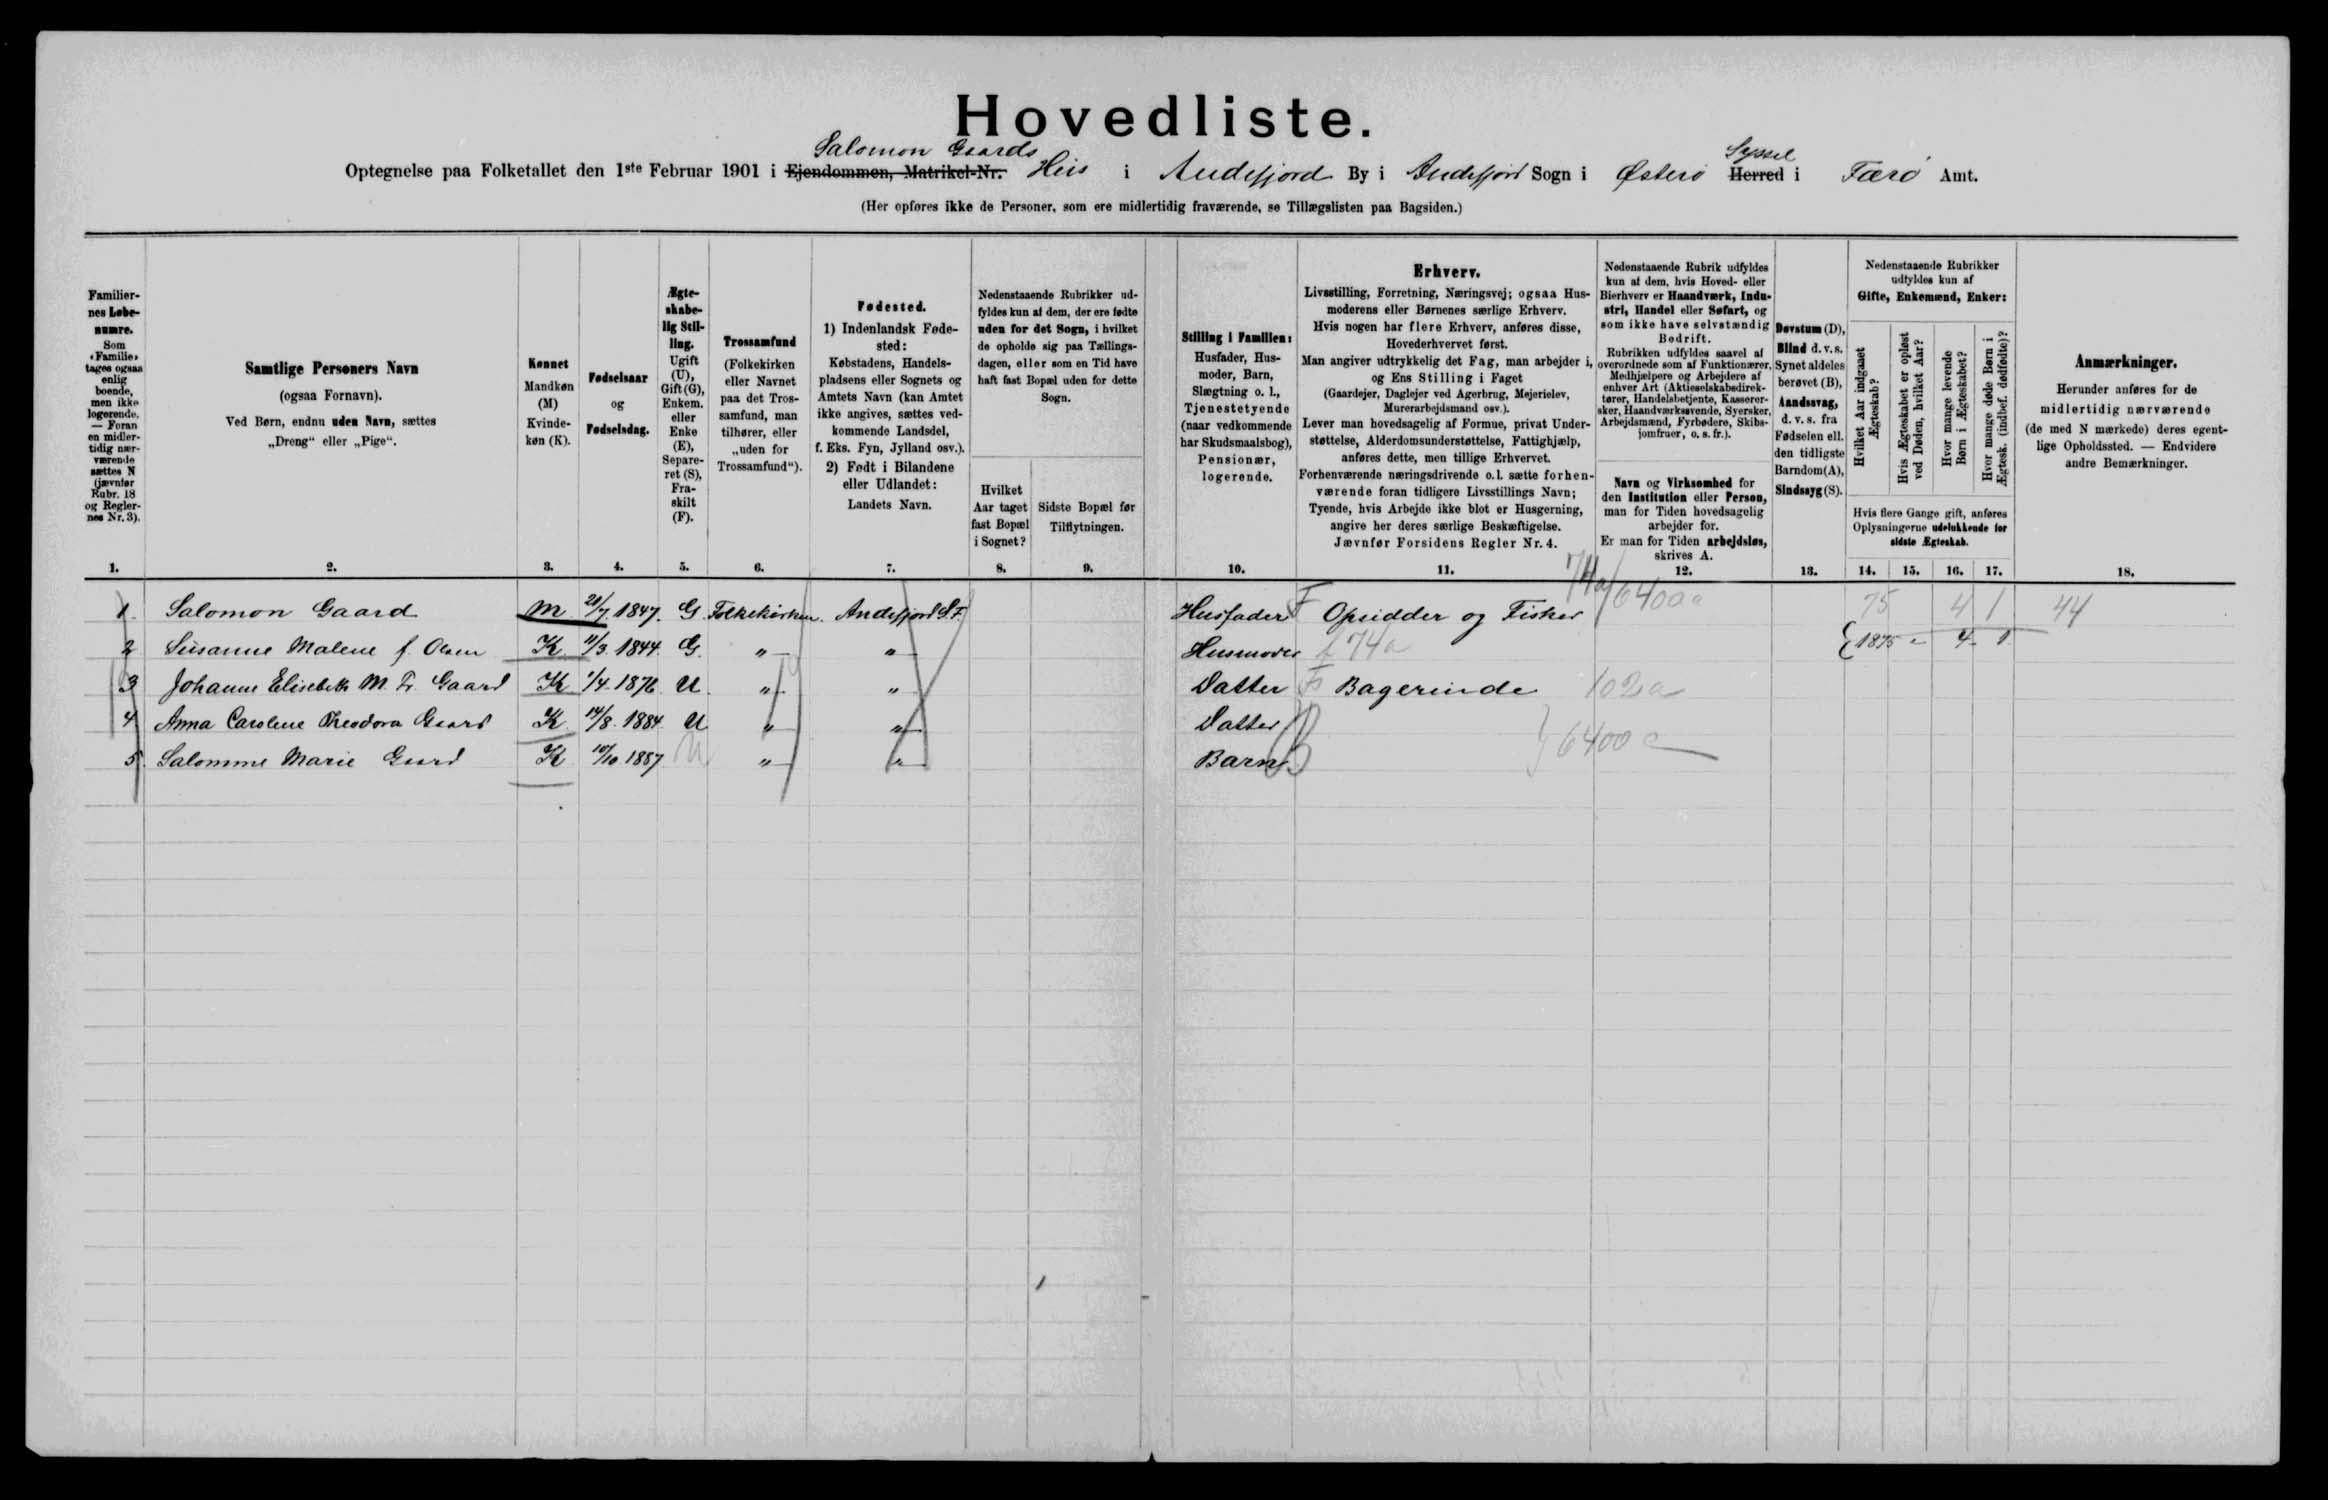 Hovedliste.
Salomon Gaards
Syssel
Optegnelse paa Folketallet den 1ste Februar 1901 i Ejendommen, Matrikel-Nr. Hus i Andefjord By i Andefjord Sogn i Østerø Herred i Færø Amt.
(Her opføres ikke de Personer, som ere midlertidig fraværende, se Tillægslisten paa Bagsiden.)
Familier-
nes Løbe-
numre.
Som
«Familie»
tages ogsaa
enlig
boende,
men ikke
logerende.
— Foran
en midler-
tidig nær-
værende
sættes N
(jævnfør
Rubr. 18
og Regler-
nes Nr. 3).
1.
Samtlige Personers Navn
(ogsaa Fornavn).
Ved Børn, endnu uden Navn, sættes
„Dreng“ eller „Pige“.
2.
Kønnet
Mandkøn
(M)
Kvinde-
køn (K).
3.
Fødselsaar
og
Fødselsdag.
4.
Ægte-
skabe-
lig Stil-
ling.
Ugift
(U),
Gift (G),
Enkem.
eller
Enke
(E),
Separe-
ret (S),
Fra-
skilt
(F).
5.
Trossamfund
(Folkekirken
eller Navnet
paa det Tros-
samfund, man
tilhører, eller
„uden for
Trossamfund“).
6.
Fødested.
1) Indenlandsk Føde-
sted:
Købstadens, Handels-
pladsens eller Sognets og
Amtets Navn (kan Amtet
ikke angives, sættes ved-
kommende Landsdel,
f. Eks. Fyn, Jylland osv.).
2) Født i Bilandene
eller Udlandet:
Landets Navn.
7.
Nedenstaaende Rubrikker ud-
fyldes kun af dem, der ere fødte
uden for det Sogn, i hvilket
de opholde sig paa Tællings-
dagen, eller som en Tid have
haft fast Bopæl uden for dette
Sogn.
Hvilket
Aar taget
fast Bopæl
i Sognet?
8.
Sidste Bopæl før
Tilflytningen.
9.
Stilling i Familien:
Husfader, Hus-
moder, Barn,
Slægtning o. l.,
Tjenestetyende
(naar vedkommende
har Skudsmaalsbog),
Pensionær,
logerende.
10.
Erhverv.
Livsstilling, Forretning, Næringsvej; ogsaa Hus-
moderens eller Børnenes særlige Erhverv.
Hvis nogen har flere Erhverv, anføres disse,
Hovederhvervet først.
Man angiver udtrykkelig det Fag, man arbejder i,
og Ens Stilling i Faget
(Gaardejer, Daglejer ved Agerbrug, Mejerielev,
Murerarbejdsmand osv.).
Lever man hovedsagelig af Formue, privat Under-
støttelse, Alderdomsunderstøttelse, Fattighjælp,
anføres dette, men tillige Erhvervet.
Forhenværende næringsdrivende o.l. sætte forhen-
værende foran tidligere Livsstillings Navn;
Tyende, hvis Arbejde ikke blot er Husgerning,
angive her deres særlige Beskæftigelse.
Jævnfør Forsidens Regler Nr. 4.
11.
Nedenstaaende Rubrik udfyldes
kun af dem, hvis Hoved- eller
Bierhverv er Haandværk, Indu-
stri, Handel eller Søfart, og
som ikke have selvstændig
Bedrift.
Rubrikken udfyldes saavel af
overordnede som af Funktionærer,
Medhjælpere og Arbejdere af
enhver Art (Aktieselskabsdirek-
tører, Handelsbetjente, Kasserer-
sker, Haandværkssvende, Syersker,
Arbejdsmænd, Fyrbødere, Skibs-
jomfruer, o. s. fr.).
Navn og Virksomhed for
den Institution eller Person,
man for Tiden hovedsagelig
arbejder for.
Er man for Tiden arbejdsløs,
skrives A.
12.
Døvstum (D),
Blind d. v. s.
Synet aldeles
berøvet (B),
Aandssvag,
d. v. s. fra
Fødselen ell.
den tidligste
Barndom (A),
Sindssyg (S).
13.
Nedenstaaende Rubrikker
udfyldes kun af
Gifte, Enkemænd, Enker:
Hvilket Aar indgaaet
Ægteskab?
Hvis Ægteskabet er opløst
ved Døden, hvilket Aar?
Hvor mange levende
Børn i Ægteskabet?
Hvor mange døde Børn i
Ægtesk. (indbef. dødfødte)?
Hvis flere Gange gift, anføres
Oplysningerne udelukkende for
sidste Ægteskab.
14. 15. 16. 17.
Anmærkninger.
Herunder anføres for de
midlertidig nærværende
(de med N mærkede) deres egent-
lige Opholdssted. — Endvidere
andre Bemærkninger.
18.
1. Salomon Gaard M 21/7. 1847. G. Folkekirken. Andefjord S. F. Husfader F Opsidder og Fisker 74a/6400a 75 4 1 44
2 Susanne Malene f. Olsen K 11/3. 1844. G. " " Husmoder f 74a { 1875 " 4 1
3 Johanne Elisebeth M. Fr. Gaard K 1/4. 1876 U " " Datter F Bagerinde 102a
4 Anna Carolene Theodora Gaard K 14/8. 1884 U " " Datter B } 6400
5. Salomine Marie Gaard K 10/10 1887 U " " Barn B